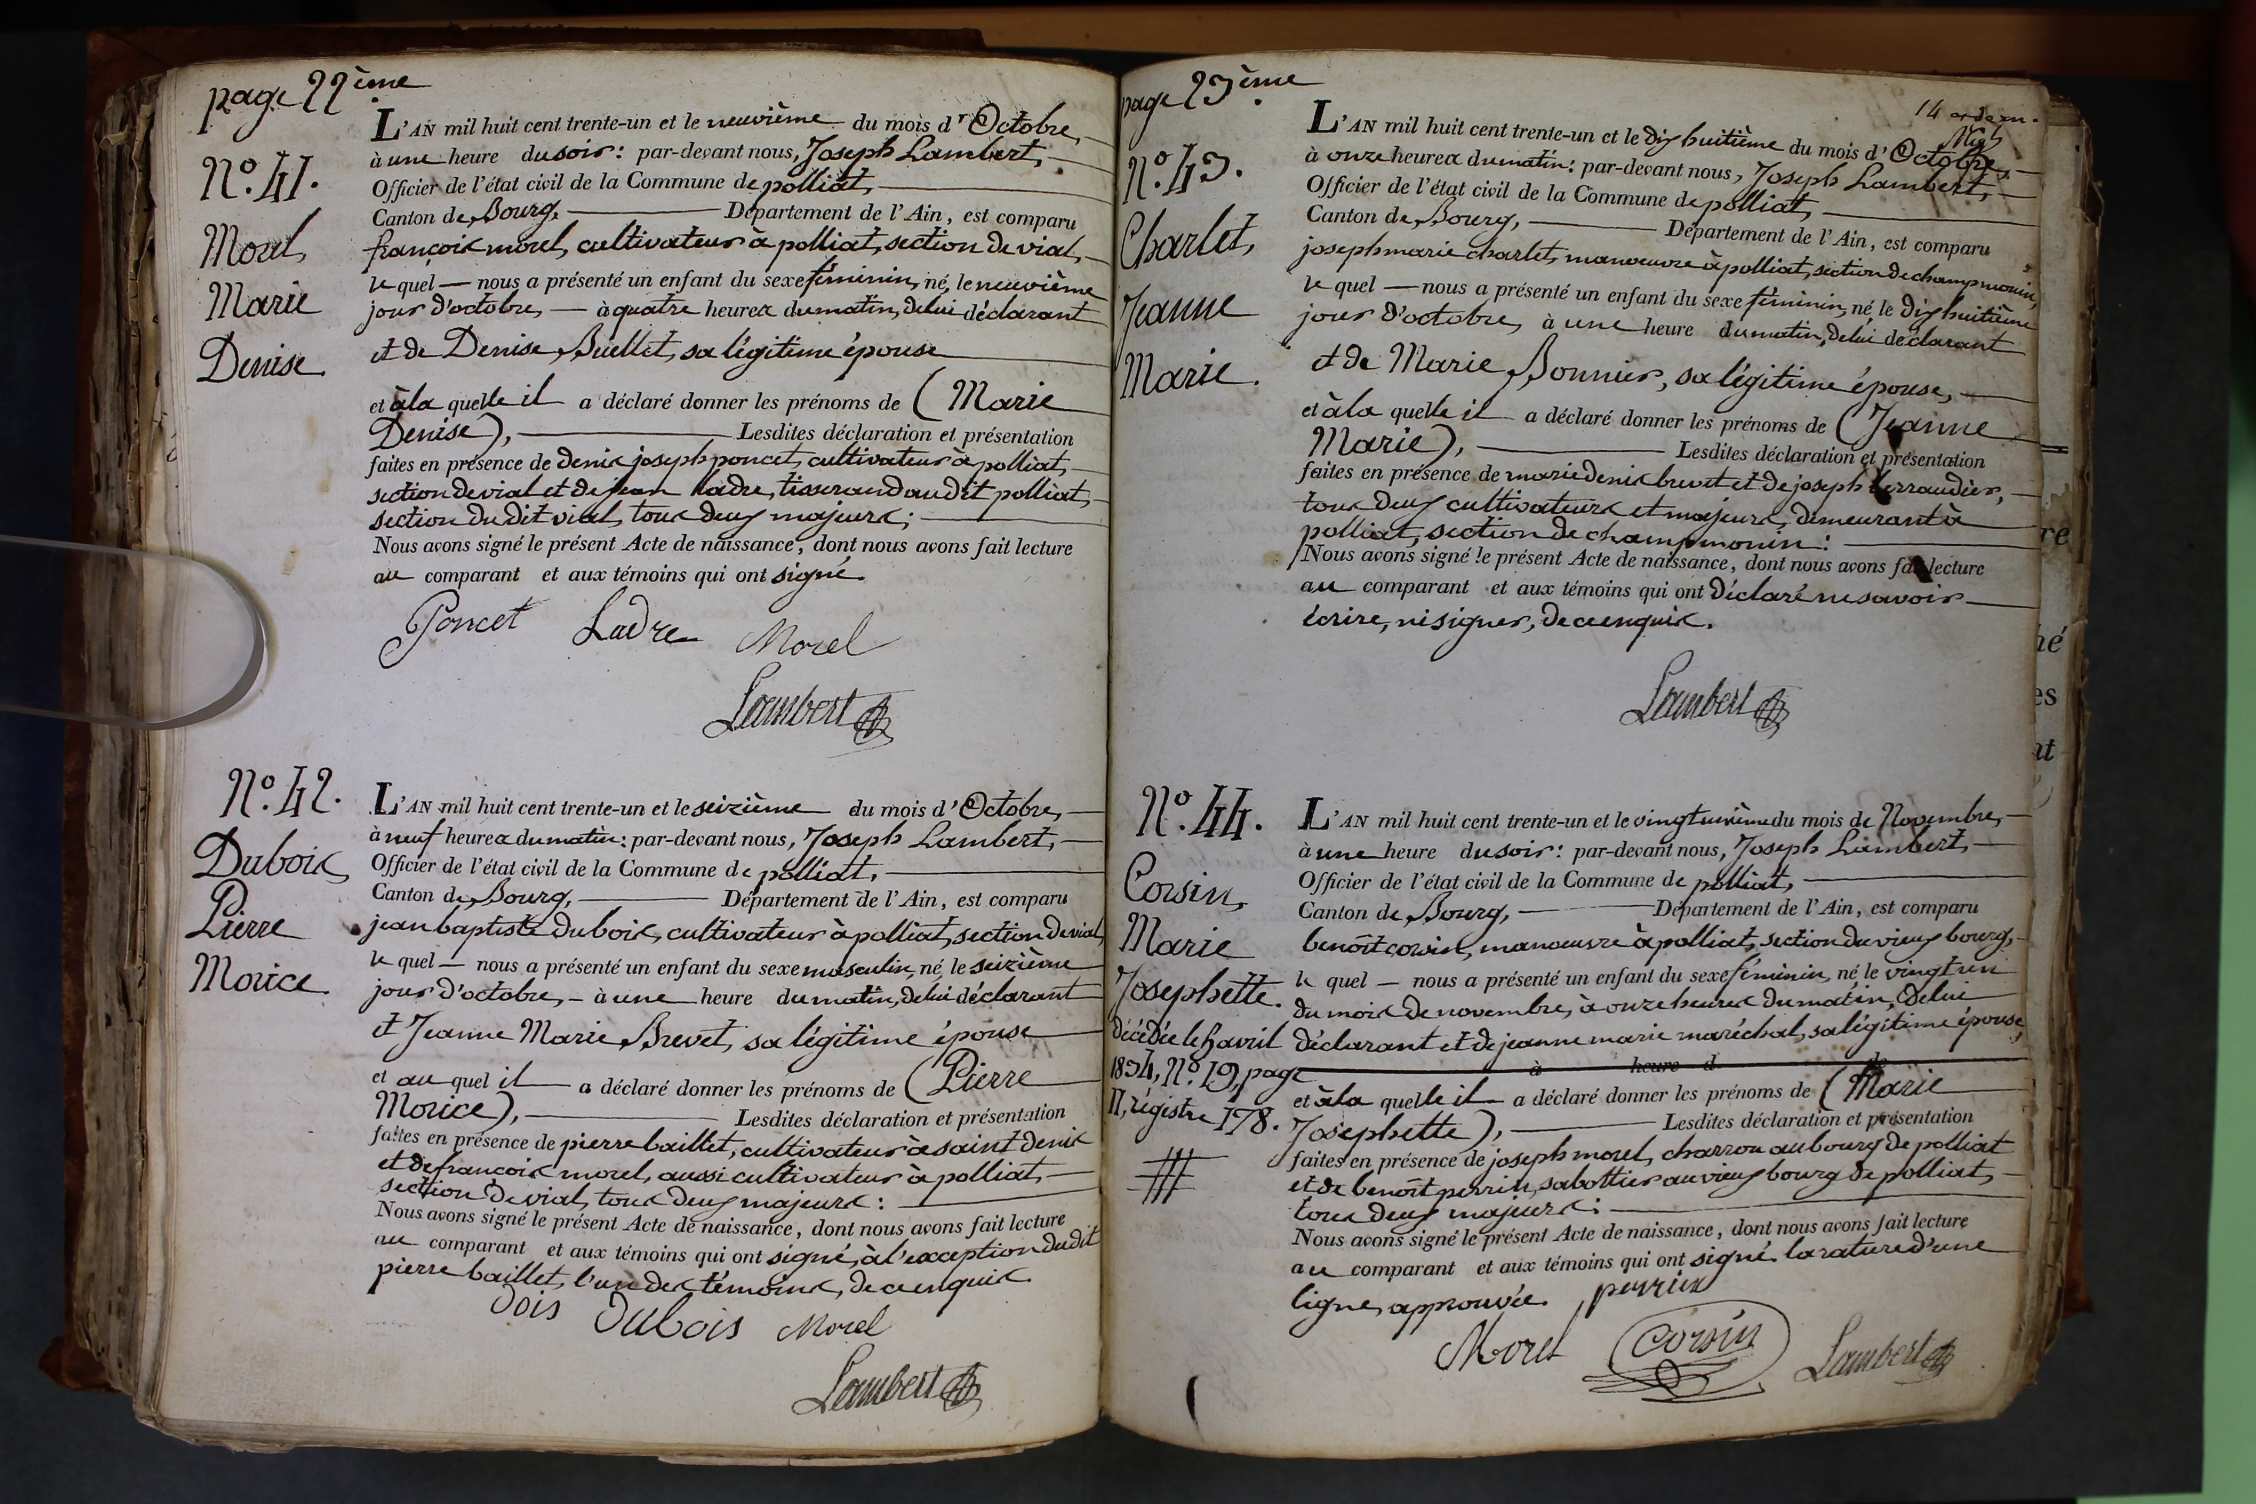 page 22ème
N.º 41.
Morel,
Marie
Denise.
L'AN mil huit cent trente-un et le neuvième du mois d'Octobre,
à une heure du soir : par-devant nous, Joseph Lambert,
Officier de l'état civil de la Commune de polliat,
Canton de Bourg, Département de l'Ain, est comparu
françois morel, cultivateur à polliat, section de vial,
le quel nous a présenté un enfant du sexe féminin, né, le neuvième
jour d'octobre, à quatre heures du matin, de lui déclarant
et de Denise Buellet, sa légitime épouse
et à la quelle il a déclaré donner les prénoms de (Marie
Denise), Lesdites déclaration et présentation
faites en présence de denis joseph poncet, cultivateur à polliat,
section de vial et de jean ladre, tisserand au dit polliat,
section du dit vial, tous deux majeurs ;
Nous avons signé le présent Acte de naissance, dont nous avons fait lecture
au comparant et aux témoins qui ont signé.
Poncet Ladre Morel
Lambert
N.º 42.
Dubois,
Pierre
Morice.
L'AN mil huit cent trente-un et le seizième du mois d'Octobre,
à neuf heures du matin : par-devant nous, Joseph Lambert,
Officier de l'état civil de la Commune de polliat,
Canton de Bourg, Département de l'Ain, est comparu
jean baptiste dubois, cultivateur à polliat, section de vial,
le quel nous a présenté un enfant du sexe masculin, né, le seizième
jour d'octobre, à une heure du matin, de lui déclarant
et Jeanne Marie Brevet, sa légitime épouse
et au quel il a déclaré donner les prénoms de (Pierre
Morice), Lesdites déclaration et présentation
faites en présence de pierre baillet, cultivateur à saint denis
et de françois morel, aussi cultivateur à polliat,
section de vial, tous deux majeurs :
Nous avons signé le présent Acte de naissance, dont nous avons fait lecture
au comparant et aux témoins qui ont signé, à l'exception du dit
pierre baillet, l'un des témoins, de ce enquis.
dois dubois Morel
Lambert
page 23ème
14
N.º 43.
Charlet,
Jeanne
Marie.
L'AN mil huit cent trente-un et le dix huitième du mois d'Octobre,
à onze heures du matin : par-devant nous, Joseph Lambert,
Officier de l'état civil de la Commune de polliat,
Canton de Bourg, Département de l'Ain, est comparu
joseph marie charlet, manoeuvre à polliat, section de champmonin,
le quel nous a présenté un enfant du sexe féminin, né le dix huitième
jour d'octobre, à une heure du matin, de lui déclarant
et de Marie Bonnier, sa légitime épouse,
et à la quelle il a déclaré donner les prénoms de (Jeanne
Marie), Lesdites déclaration et présentation
faites en présence de marie denis brevet et de joseph ferraudier,
tous deux cultivateurs et majeurs, demeurant à
polliat, section de champmonin :
Nous avons signé le présent Acte de naissance, dont nous avons fait lecture
au comparant et aux témoins qui ont déclaré ne savoir
écrire, ni signer, de ce enquis.
Lambert
N.º 44.
Corsin,
Marie
Josephette.
décédée le 5 avril
1834, N.º 19, page
11, régistre 178.
L'AN mil huit cent trente-un et le vingt unième du mois de Novembre,
à une heure du soir : par-devant nous, Joseph Lambert,
Officier de l'état civil de la Commune de polliat,
Canton de Bourg, Département de l'Ain, est comparu
benoît corsin, manoeuvre à polliat, section du vieux bourg,
le quel nous a présenté un enfant du sexe féminin, né le vingt un
du mois de novembre, à onze heures du matin, de lui
déclarant et de jeanne marie maréchal, sa légitime épouse,
à heure d de
et à la quelle il a déclaré donner les prénoms de (Marie
Josephette), Lesdites déclaration et présentation
faites en présence de joseph morel, charron au bourg de polliat
et de benoît perrin, sabottier au vieux bourg de polliat,
tous deux majeurs :
Nous avons signé le présent Acte de naissance, dont nous avons fait lecture
au comparant et aux témoins qui ont signé. la rature d'une
ligne, approuvée. perrin
Morel Corsin Lambert
re
né
es
at